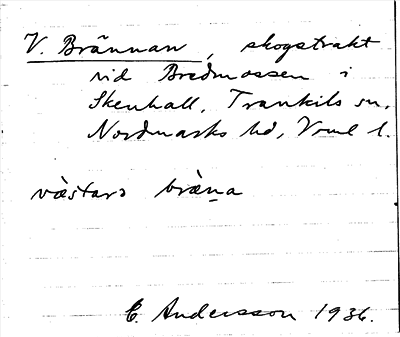 V. Brännan, skogstrakt
vid Bredmossen i
Skenhall, Trankils sn,
Nordmarks hd, Vrml l.
västarɔ bräṉa
E. Andersson 1936.